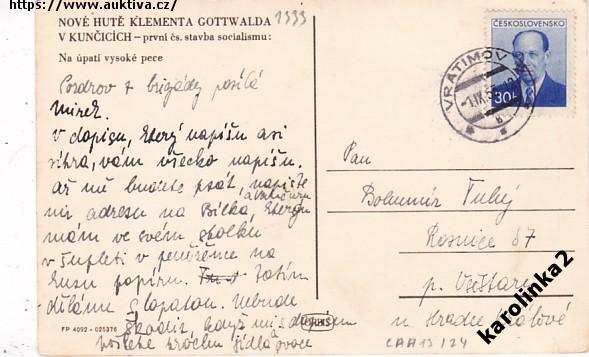 https://www.auktiva.cz/
NOVÉ HUTĚ KLEMENTA GOTTWALDA
V KUNČICÍCH – první čs. stavba socialismu:
Na úpatí vysoké pece
1333
ČESKOSLOVENSKO
30h
VRATIMOV
Pozdrav z brigády posílá
Mirek.
V dopisu, který napíšu asi
zítra, vám všecko napíšu.
Až mě budete psát, napište
mi adresu na Bílka, kterou
mám ve svém stolku
v šupleti v peněžence na
kusu papíru. Zatím
děláme s lopatou. Nebude
škodit, když mi s dopisem
pošlete trochu jídla
Pan
Bohumír Tuhý
Rosnice 67
p. Všestary
u Hradce Králové
ORBIS
FP 4092 - 025376
CAA13/24
karolinka2